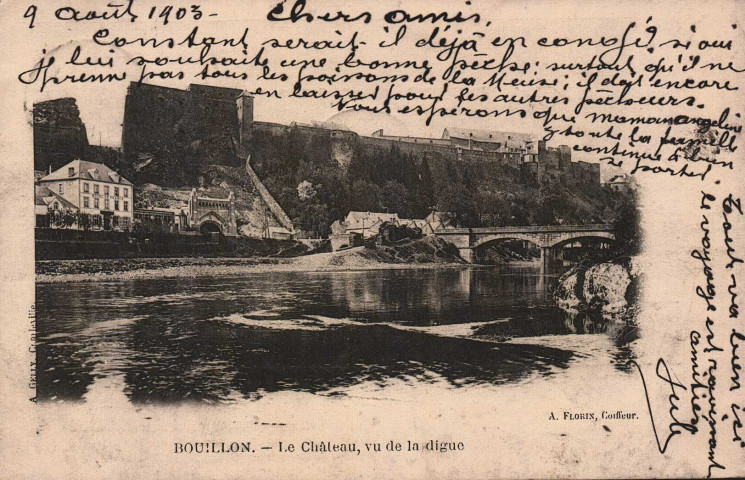 9 Août 1903 - Chers amis,
Constant serait-il déjà en congé, si oui
je lui souhaite une bonne pêche; surtout qu'il ne
prenne pas tous les poissons de la Meuse; il doit encore
en laisser pour les autres pêcheurs.
Nous espérons que maman angeline
et toute la famille
continue à bien
se porter.
Tout va bien ici
le voyage est ravissant
amitiés
Jule
A. FLORIN, Coiffeur.
BOUILLON. - Le Château, vu de la digue